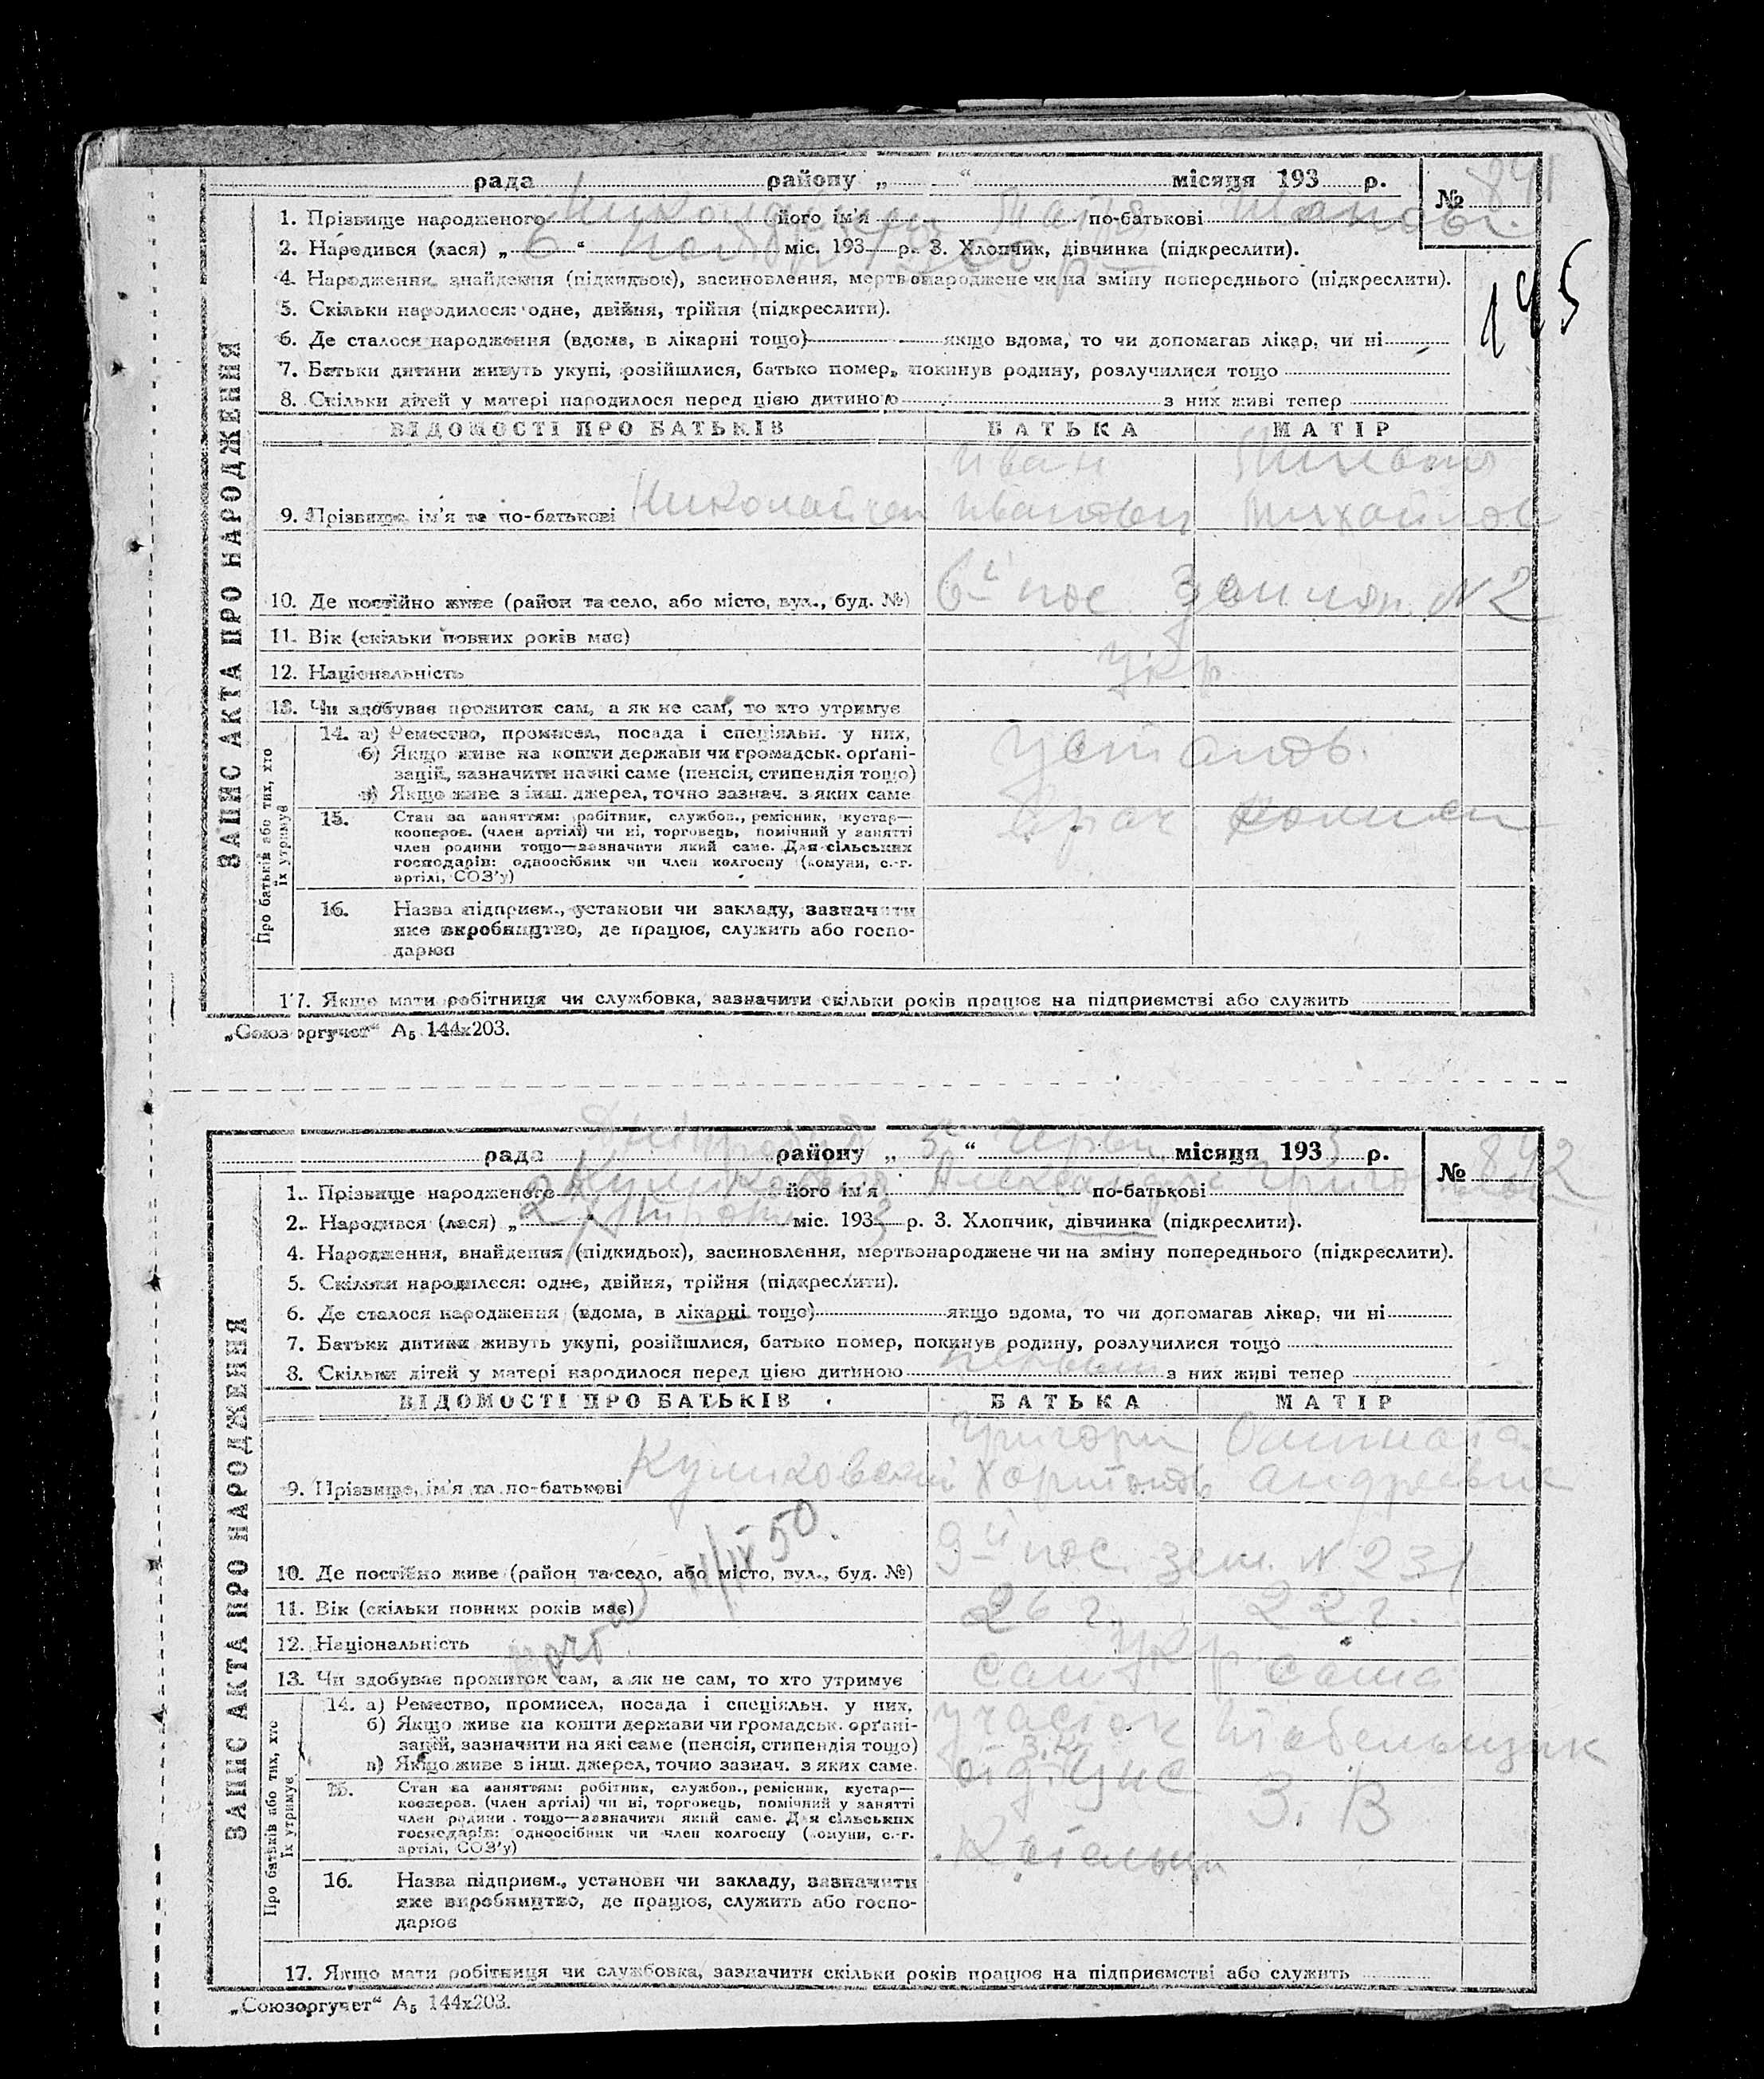 рада району „ “ місяця 193 р.
№ 841
1. Прізвище народженого його ім'я по-батькові
2. Народився (лася) „ 6 “ міс. 193 р. 3. Хлопчик, дівчинка (підкреслити).
145
4. Народження, знайдення (підкидьок), засиновлення, мертвонароджене чи на зміну попереднього (підкреслити).
5. Скільки народилося: одне, двійня, трійня (підкреслити).
6. Де сталося народження (вдома, в лікарні тощо) якщо вдома, то чи допомагав лікар, чи ні
7. Батьки дитини живуть укупі, розійшлися, батько помер, покинув родину, розлучилися тощо
8. Скільки дітей у матері народилося перед цією дитиною з них живі тепер
ВІДОМОСТІ ПРО БАТЬКІВ БАТЬКА МАТІР
Иван
9. Прізвище, ім'я та по-батькові
10. Де постійно живе (район та село, або місто, вул., буд. №) 6й пос N 2
11. Вік (скільки повних років має)
12. Національність укр
13. Чи здобуває прожиток сам, а як не сам, то хто утримує
14. а) Ремество, промисел, посада і спеціяльн. у них,
б) Якщо живе на кошти держави чи громадськ. органі-
зацій, зазначити на які саме (пенсія, стипендія тощо)
в) Якщо живе з інш. джерел, точно зазнач. з яких саме
15. Стан за заняттям: робітник, службов., ремісник, кустар—
кооперов. (член артілі) чи ні, торговець, помічний у занятті
член родини тощо—зазначити який саме. Для сільських
господарів: одноосібник чи член колгоспу (комуни, с.-г.
артілі, СОЗ'у)
16. Назва підприєм., установи чи закладу, зазначити
яке виробництво, де працює, служить або госпо-
дарює
17. Якщо мати робітниця чи службовка, зазначити скільки років працює на підприємстві або служить
ЗАПИС АКТА ПРО НАРОДЖЕННЯ
Про батьків або тих, хто
їх утримує
„Союзоргучет“ А5 144х203.
рада району „ 5 “ червн місяця 193 3 р.
№ 842
1. Прізвище народженого його ім'я Александра по-батькові
2. Народився (лася) „ 2 “ міс. 193 3 р. 3. Хлопчик, дівчинка (підкреслити).
4. Народження, знайдення (підкидьок), засиновлення, мертвонароджене чи на зміну попереднього (підкреслити).
5. Скільки народилося: одне, двійня, трійня (підкреслити).
6. Де сталося народження (вдома, в лікарні тощо) якщо вдома, то чи допомагав лікар, чи ні
7. Батьки дитини живуть укупі, розійшлися, батько помер, покинув родину, розлучилися тощо
8. Скільки дітей у матері народилося перед цією дитиною з них живі тепер
ВІДОМОСТІ ПРО БАТЬКІВ БАТЬКА МАТІР
Григори
9. Прізвище, ім'я та по-батькові Куликовский
11/IX 50.
10. Де постійно живе (район та село, або місто, вул., буд. №) 9й пос. зем. N 231
11. Вік (скільки повних років має) 26 г. 22 г.
12. Національність укр
13. Чи здобуває прожиток сам, а як не сам, то хто утримує сам сама
14. а) Ремество, промисел, посада і спеціяльн. у них, участок табельщик
б) Якщо живе на кошти держави чи громадськ. органі-
зацій, зазначити на які саме (пенсія, стипендія тощо)
в) Якщо живе з інш. джерел, точно зазнач. з яких саме
15. Стан за заняттям: робітник, службов., ремісник, кустар—
кооперов. (член артілі) чи ні, торговець, помічний у занятті
член родини тощо—зазначити який саме. Для сільських
господарів: одноосібник чи член колгоспу (комуни, с.-г.
артілі, СОЗ'у)
16. Назва підприєм., установи чи закладу, зазначити
яке виробництво, де працює, служить або госпо-
дарює
17. Якщо мати робітниця чи службовка, зазначити скільки років працює на підприємстві або служить
ЗАПИС АКТА ПРО НАРОДЖЕННЯ
Про батьків або тих, хто
їх утримує
„Союзоргучет“ А5 144х203.